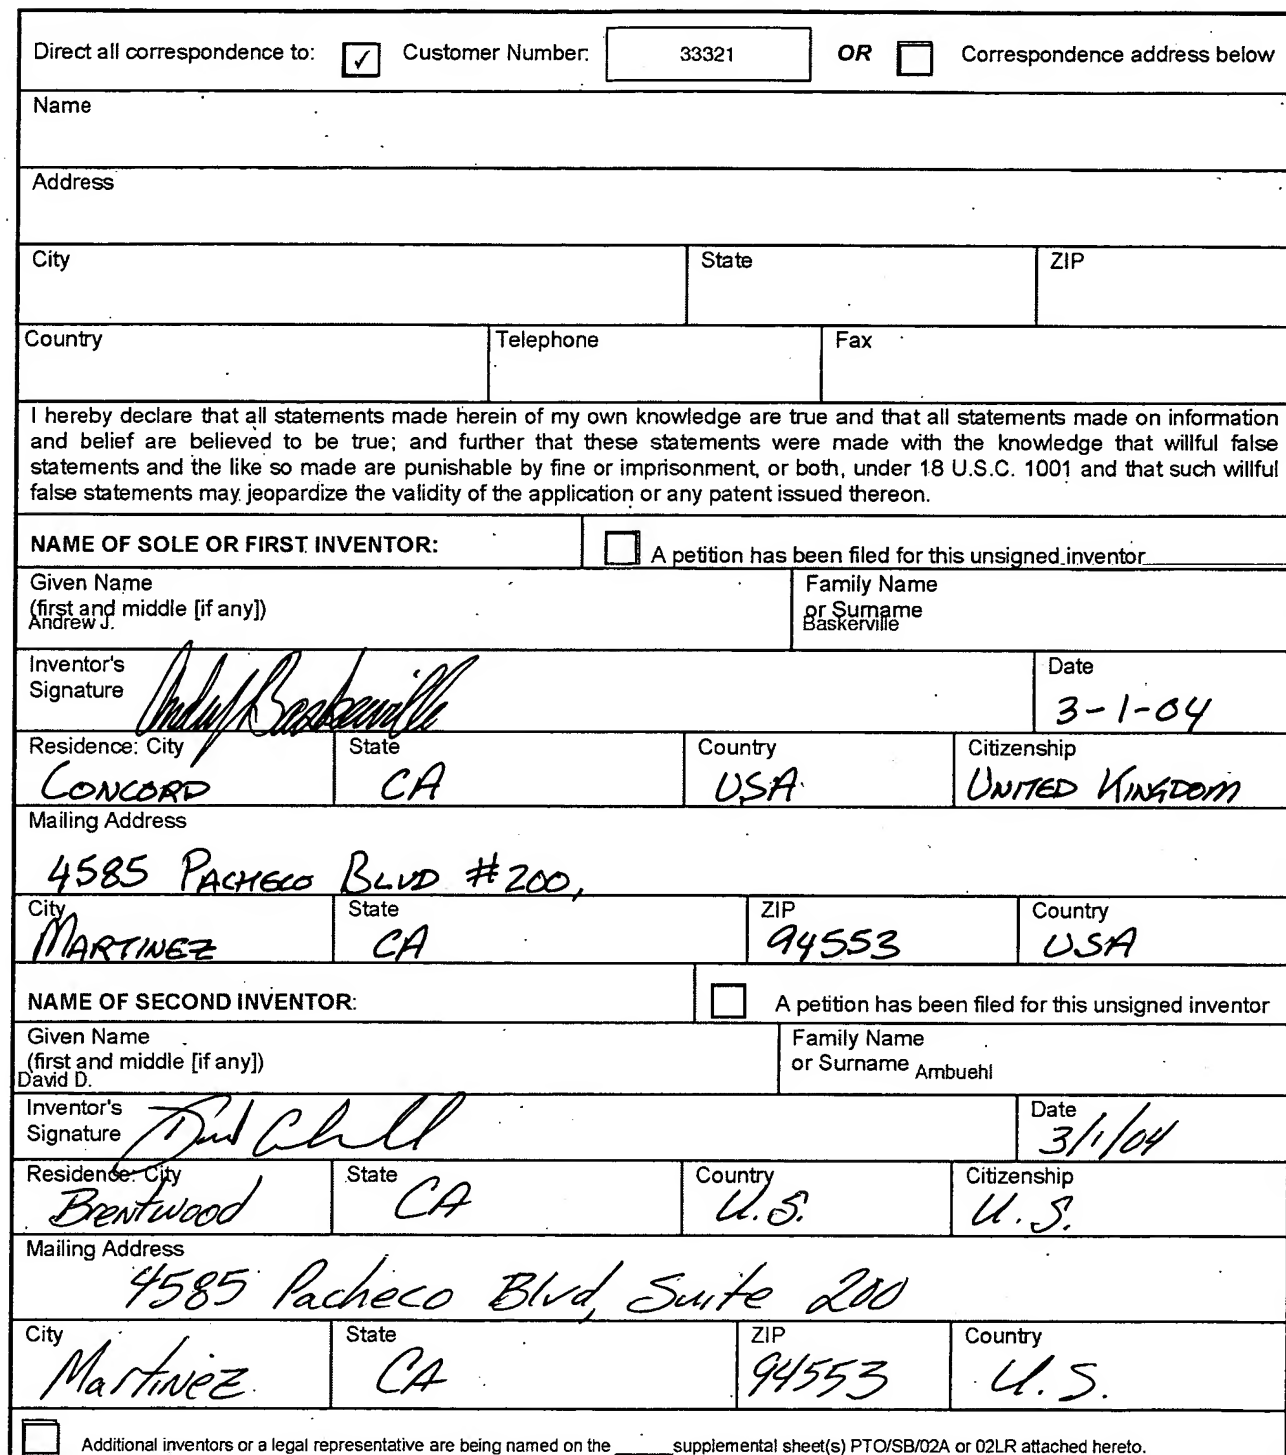 Direct all correspondence to: ✓ Customer Number: 33321 OR Correspondence address below
Name
Address
City State ZIP
Country Telephone Fax
I hereby declare that all statements made herein of my own knowledge are true and that all statements made on information
and belief are believed to be true; and further that these statements were made with the knowledge that willful false
statements and the like so made are punishable by fine or imprisonment, or both, under 18 U.S.C. 1001 and that such willful
false statements may jeopardize the validity of the application or any patent issued thereon.
NAME OF SOLE OR FIRST INVENTOR: A petition has been filed for this unsigned inventor
Given Name Family Name
(first and middle [if any]) or Surname
Andrew J. Baskerville
Inventor's Date
Signature Andrew J Baskerville 3-1-04
Residence: City State Country Citizenship
CONCORD CA USA UNITED KINGDOM
Mailing Address
4585 PACHECO BLVD #200,
City State ZIP Country
MARTINEZ CA 94553 USA
NAME OF SECOND INVENTOR: A petition has been filed for this unsigned inventor
Given Name Family Name
(first and middle [if any]) or Surname Ambuehl
David D.
Inventor's Date
Signature 3/1/04
Residence: City State Country Citizenship
Brentwood CA U.S. U.S.
Mailing Address
4585 Pacheco Blvd, Suite 200
City State ZIP Country
Martinez CA 94553 U.S.
Additional inventors or a legal representative are being named on the ______supplemental sheet(s) PTO/SB/02A or 02LR attached hereto.